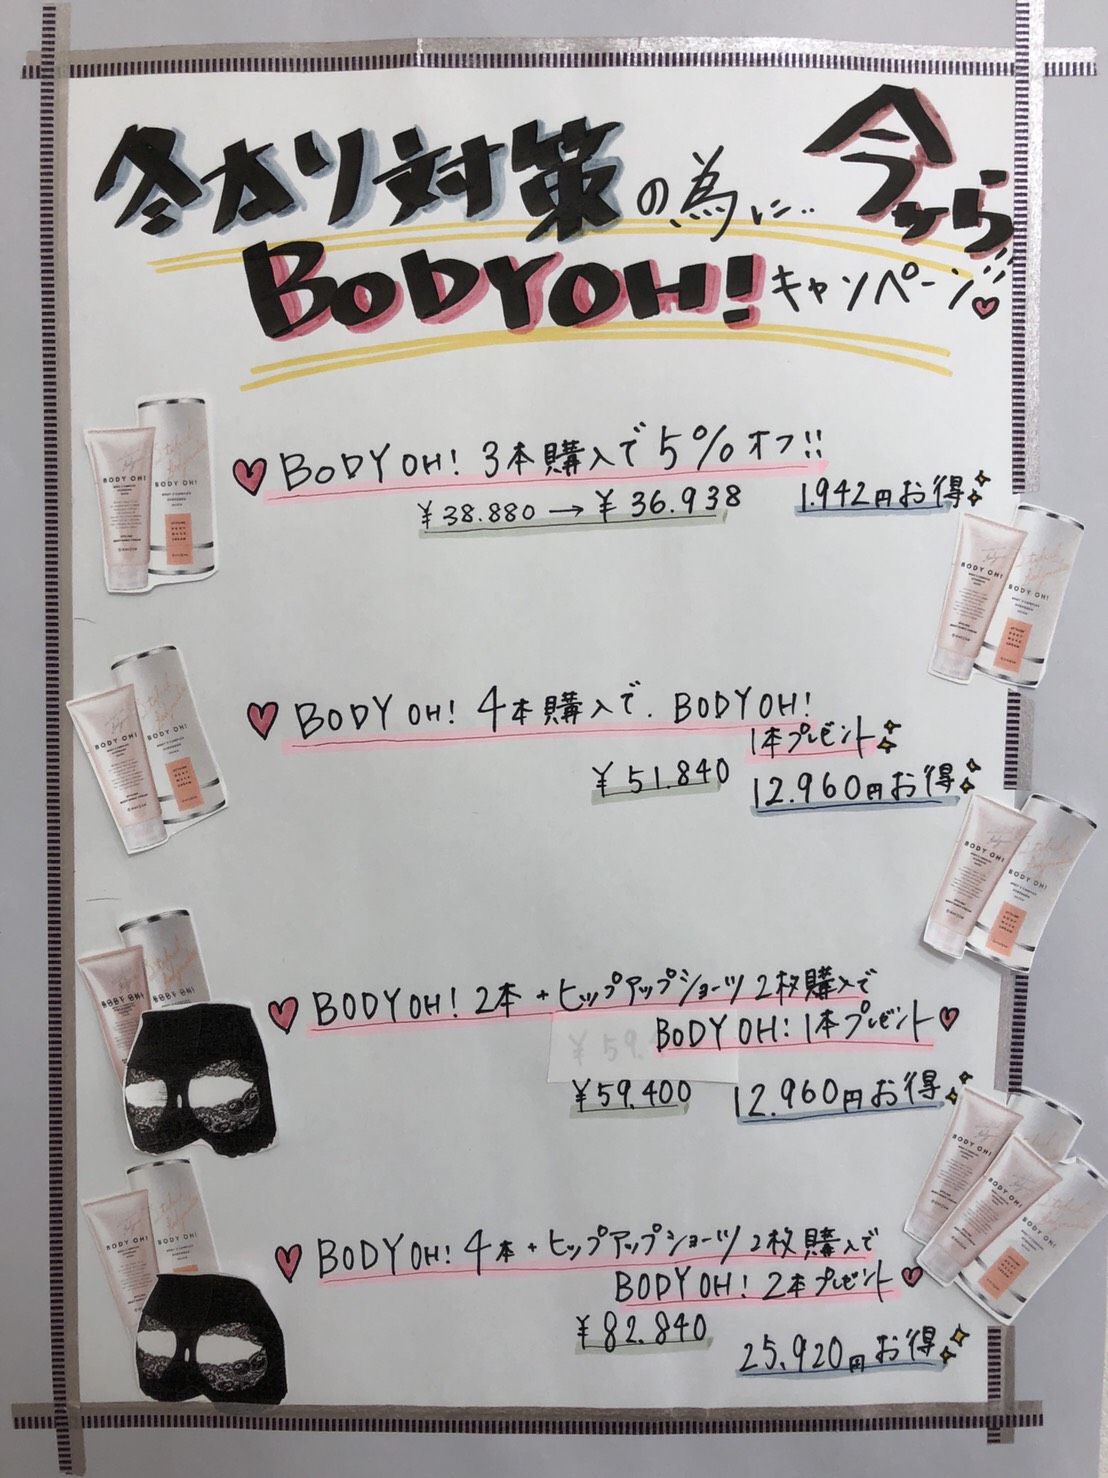 冬太り対策の為に… 今から
BODYOH!キャンペーン
BODY OH! 3本購入で5%オフ!!
¥38.880→¥36.938 1.942円お得
BODY OH! 4本購入で. BODYOH!
1本プレゼント
¥51.840 12.960円お得
BODYOH! 2本+ヒップアップショーツ2枚購入で
¥59. BODYOH! 1本プレゼント
¥59.400 12.960円お得
BODYOH! 4本+ヒップアップショーツ2枚購入で
BODYOH! 2本プレゼント
¥82.840
25.920円お得
BODY OH!
BODY OH!
BODY OH!
BODY OH!
BODY OH!
BODY OH!
BODY OH!
BODY OH!
BODY OH!
BODY OH!
BODY OH!
BODY OH!
BODY OH!
BODY OH!